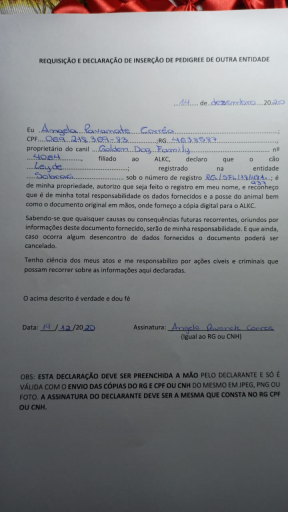 REQUISIÇÃO E DECLARAÇÃO DE INSERÇÃO DE PEDIGREE DE OUTRA ENTIDADE
14 de dezembro 2020
Eu Angela Corrêa
CPF RG
proprietário do canil Golden Dog Family nº
4084, filiado ao ALKC, declaro que o cão
Leyde registrado na entidade
Sobraci sob o número de registro é
de minha propriedade, autorizo que seja feito o registro em meu nome, e reconheço
que é de minha total responsabilidade os dados fornecidos e a posse do animal bem
como o documento original em mãos, onde forneço a cópia digital para o ALKC.
Sabendo-se que quaisquer causas ou consequências futuras recorrentes, oriundos por
informações deste documento fornecido, serão de minha responsabilidade. E que ainda,
caso ocorra algum desencontro de dados fornecidos o documento poderá ser
cancelado.
Tenho ciência dos meus atos e me responsabilizo por ações cíveis e criminais que
possam recorrer sobre as informações aqui declaradas.
O acima descrito é verdade e dou fé
Data: 14/12/2020 Assinatura: Angela
(Igual ao RG ou CNH)
OBS: ESTA DECLARAÇÃO DEVE SER PREENCHIDA A MÃO PELO DECLARANTE E SÓ É
VÁLIDA COM O ENVIO DAS CÓPIAS DO RG E CPF OU CNH DO MESMO EM JPEG, PNG OU
FOTO. A ASSINATURA DO DECLARANTE DEVE SER A MESMA QUE CONSTA NO RG CPF
OU CNH.